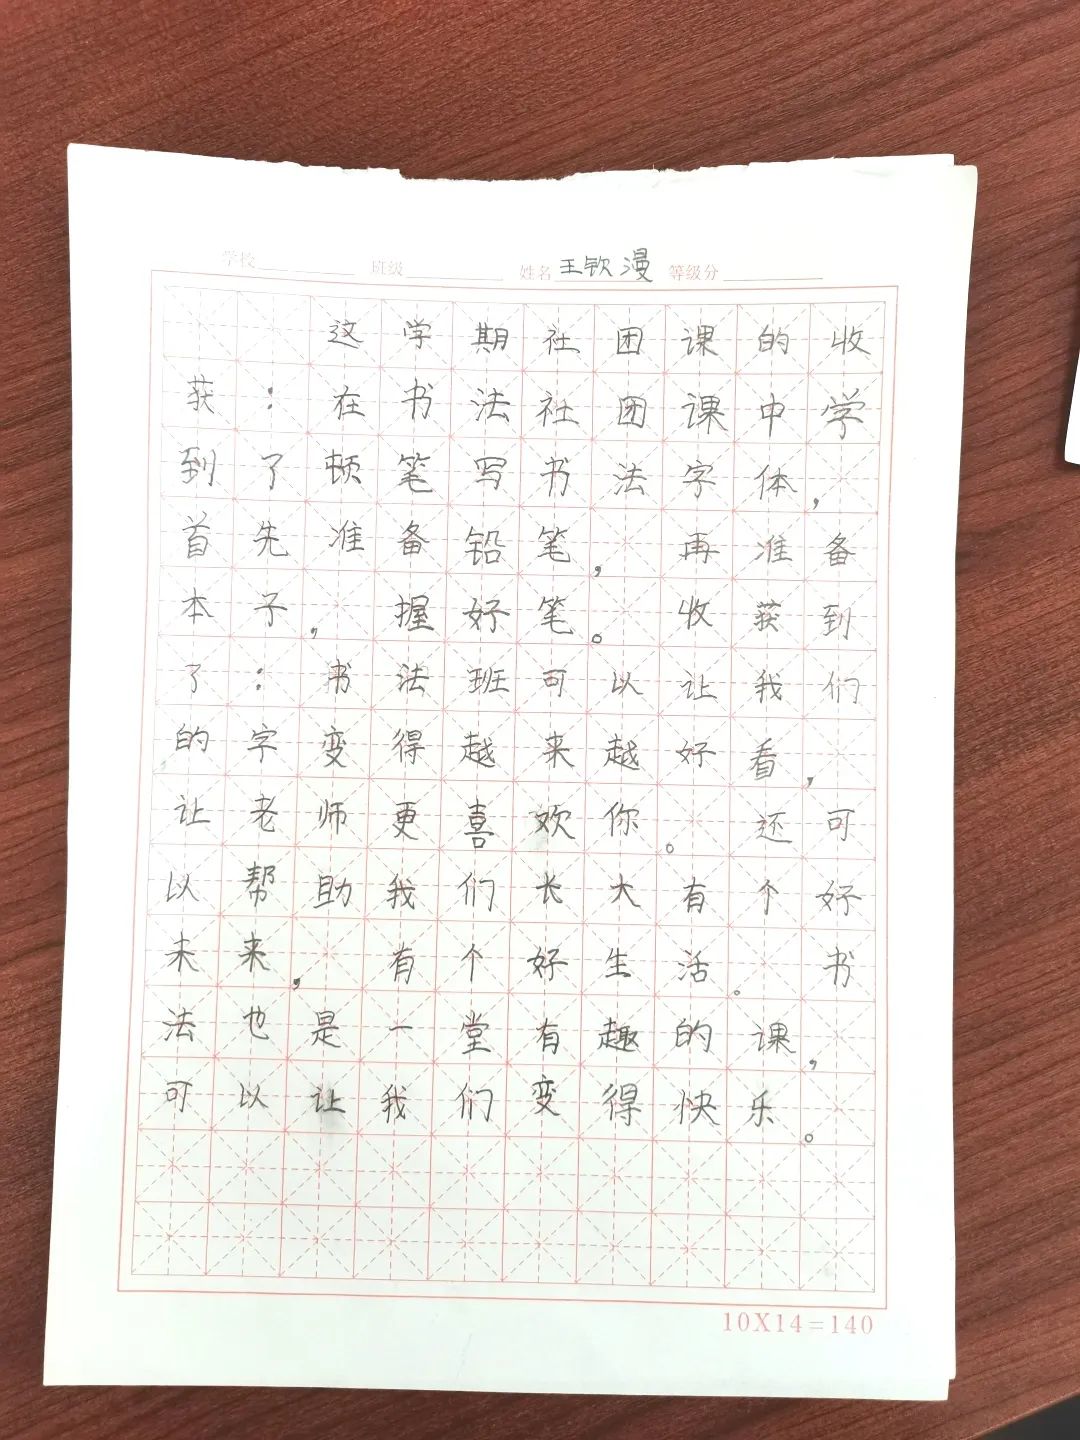 学校 班级 姓名 王钦漫 等级分
这学期社团课的收
获：在书法社团课中学
到了顿笔写书法字体，
首先准备铅笔，再准备
本子，握好笔。收获到
了：书法班可以让我们
的字变得越来越好看，
让老师更喜欢你。还可
以帮助我们长大有个好
未来，有个好生活。书
法也是一堂有趣的课，
可以让我们变得快乐。
10X14=140